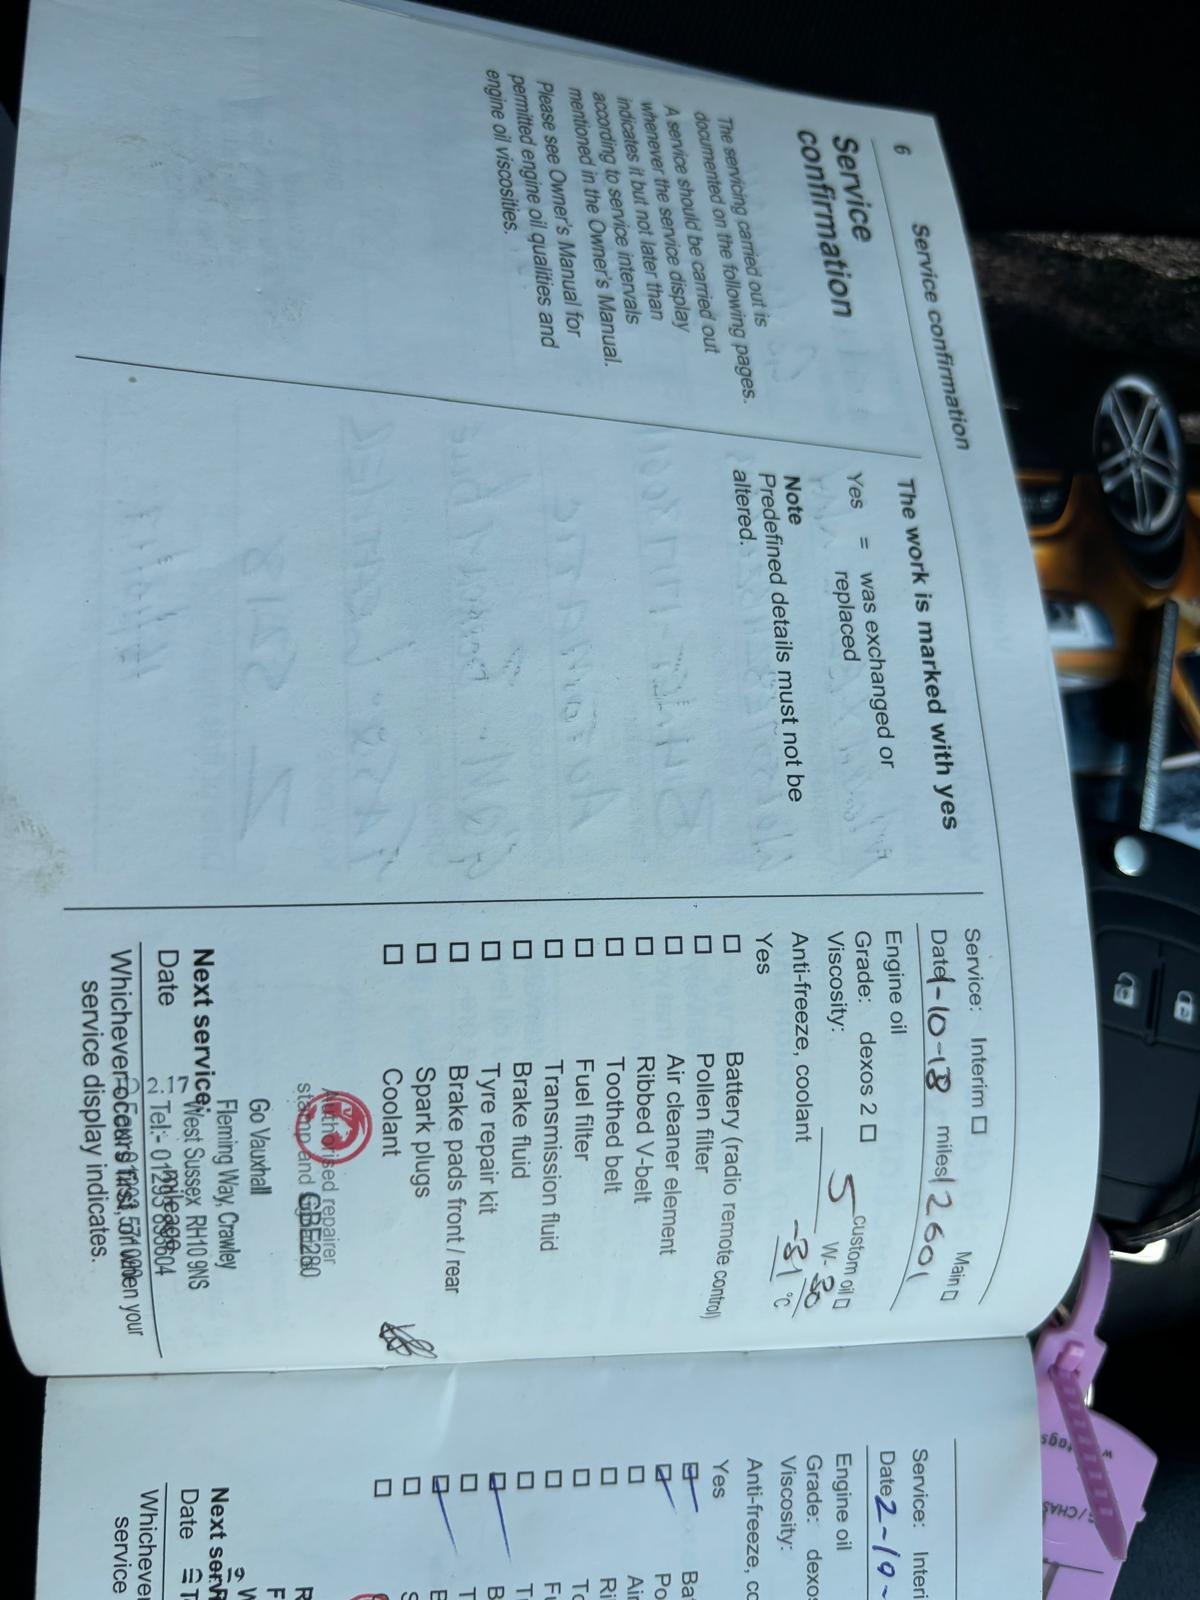 6
Service confirmation
Service
confirmation
The servicing carried out is
documented on the following pages.
A service should be carried out
whenever the service display
indicates it but not later than
according to service intervals
mentioned in the Owner's Manual.
Please see Owner's Manual for
permitted engine oil qualities and
engine oil viscosities.
The work is marked with yes
Yes = was exchanged or
replaced
Note
Predefined details must not be
altered.
Service: Interim □ Main □
Date 1-10-18 miles 12601
Engine oil
Grade: dexos 2 □ custom oil □
Viscosity: 5 W- 30
Anti-freeze, coolant -31 °C
Yes
□ Battery (radio remote control)
□ Pollen filter
□ Air cleaner element
□ Ribbed V-belt
□ Toothed belt
□ Fuel filter
□ Transmission fluid
□ Brake fluid
□ Tyre repair kit
□ Brake pads front / rear
□ Spark plugs
□ Coolant
Authorised repairer
stamp and
GBE280
Go Vauxhall
Fleming Way, Crawley
West Sussex RH10 9NS
Next service:
Tel:- 01293
Date mileage
Whichever occurs first, or when your
service display indicates.
Service: Interi
Date 2-19-
Engine oil
Grade: dexos
Viscosity:
Anti-freeze, co
Yes
□ Bat
□ Po
□ Air
□ Ri
□ To
□ Fu
□ Tr
□ B
□ T
□ B
□ S
□
Next serv
Date
Whichever
service